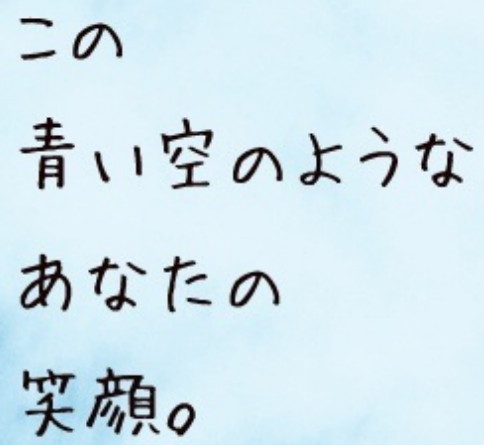 この
青い空のような
あなたの
笑顔。